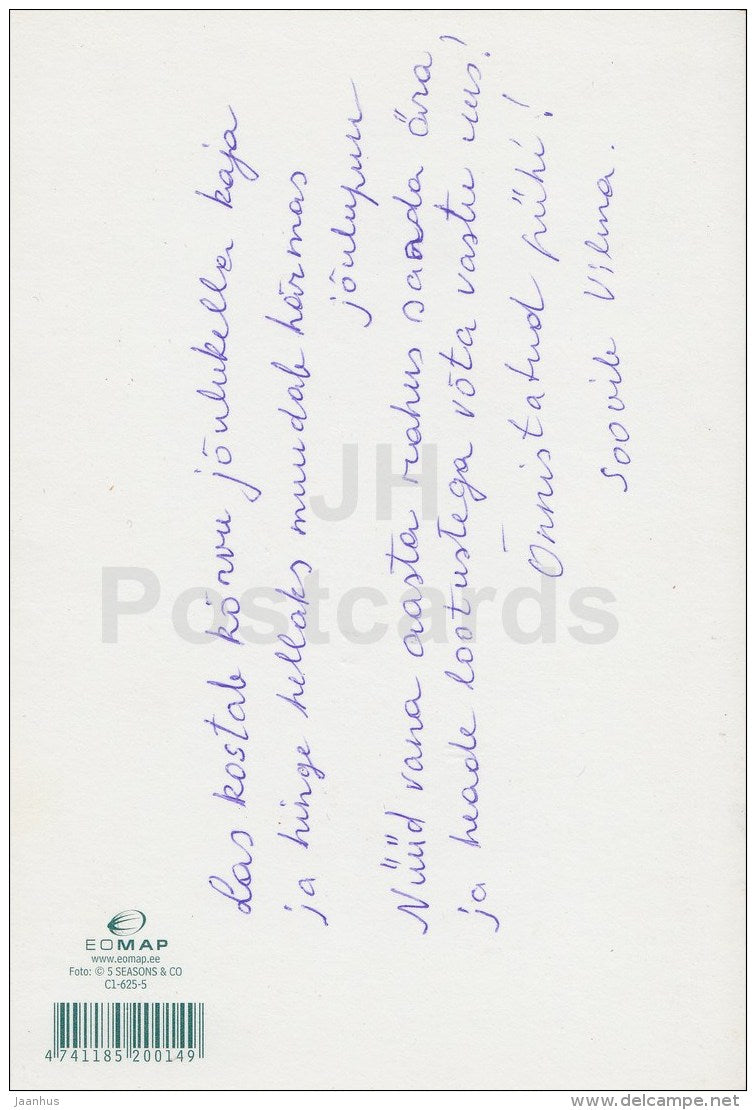 Las kostab kõrvu jõulukella kaja
ja hinge hellaks muudab härmas
jõulupuu
Nüüd vana aasta rahus saada ära
ja heade lootustega võta vastu uus!
Õnnistatud pühi!
soovib Vilma.
JH
Postcards
EOMAP
www.eomap.ee
Foto: © 5 SEASONS & CO
C1-625-5
4 741185 200149
Jaanhus
www.delcampe.net